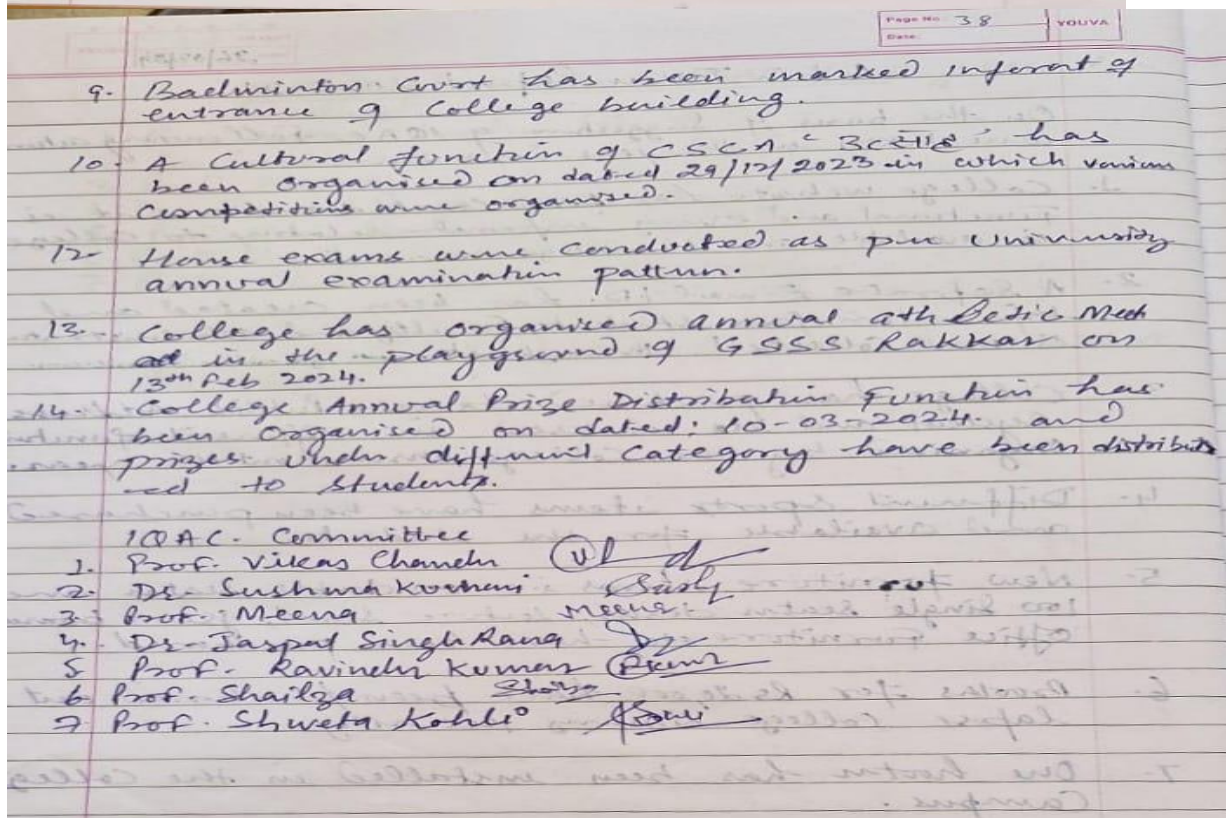 Page No. 38
Date:
YOUVA
9. Badminton Court has been marked inforont of
entrance of College building.
10. A Cultural function of CSCA "उत्साह" has
been organised on dated 29/12/2023 in which various
Competitions were organised.
12 House exams were conducted as per University
annual examination pattern.
13. College has organised annual athletic Meet
in the playground of GSSS Rakkar on
13th Feb 2024.
14. College Annual Prize Distribution Function has
been organised on dated: 10-03-2024. and
prizes under different Category have been distribut
-ed to students.
IQAC. Committee
1. Prof. Vikas Chander
2. Dr. Sushma Kumari
3. Prof. Meena Meena
4. Dr. Jaspal Singh Rana
5 Prof. Ravinder Kumar
6 Prof. Shailza
7 Prof. Shweta Kohli